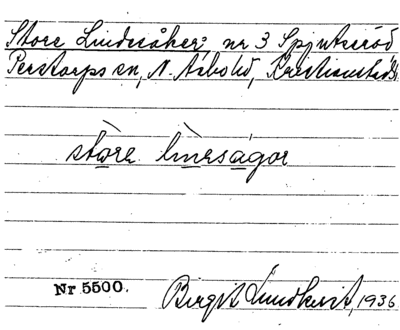 Store Lindesåker; nr 3 Spjutseröd
Perstorps sn, N. Åsbo hd, Kristianstads l.
stòre lìnesågor
Nr 5500.
Birgit Lundkvist, 1936